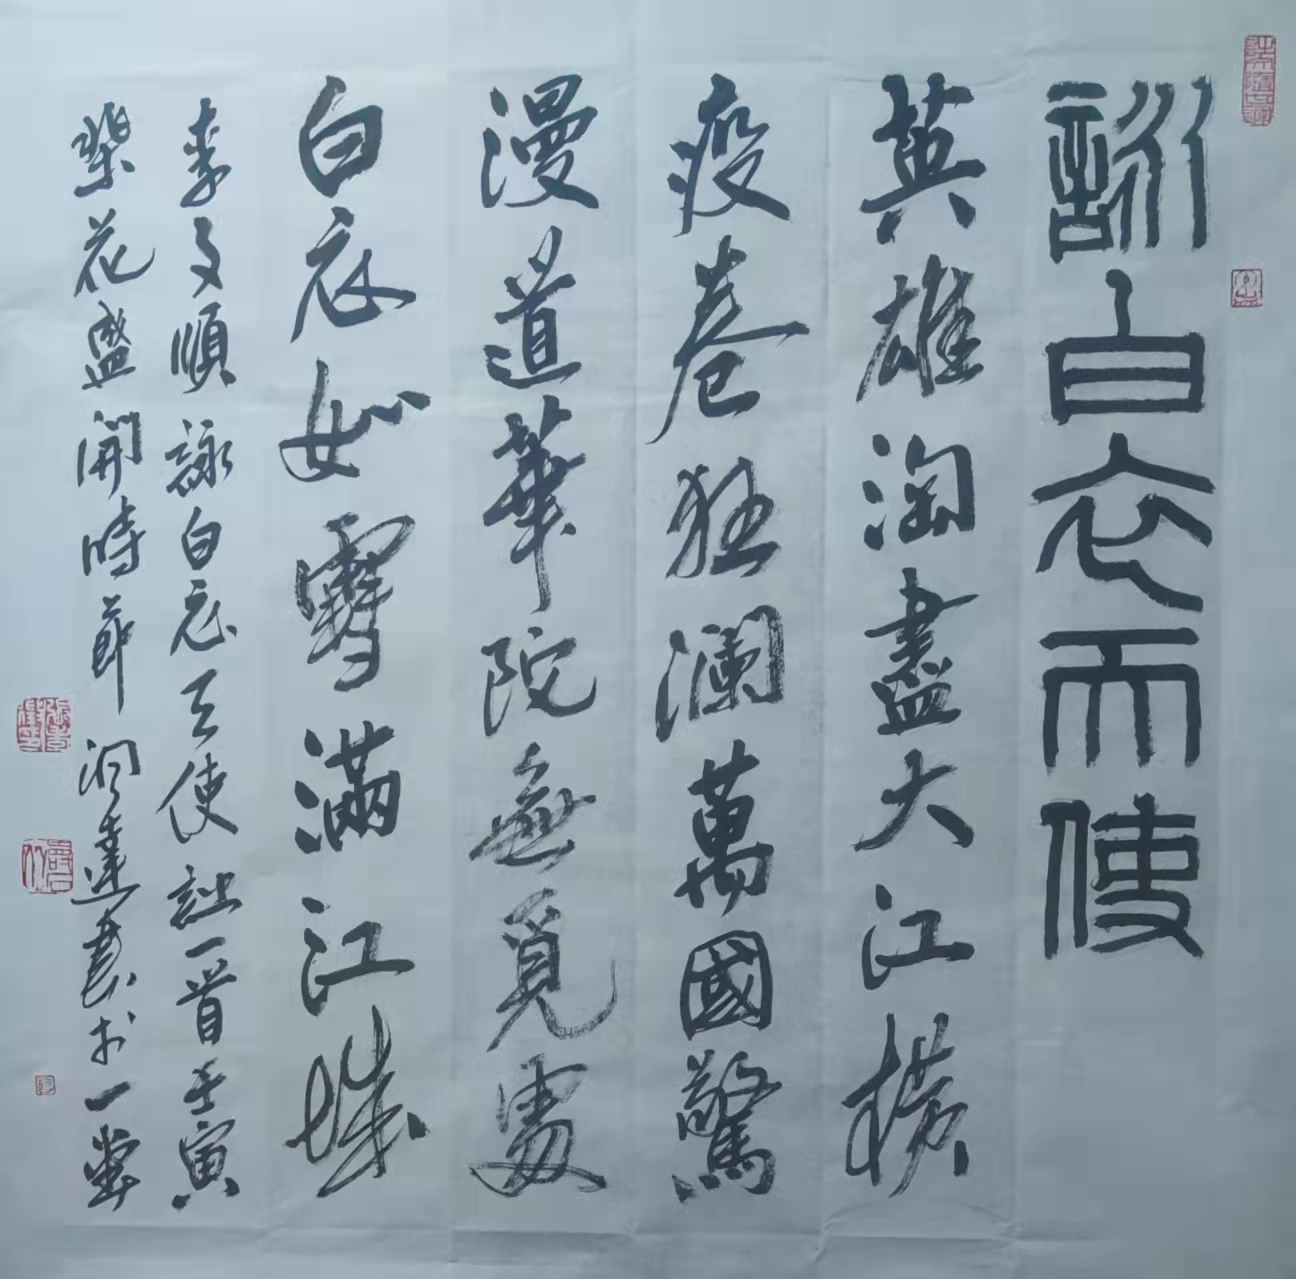 詠白衣天使
英雄淘盡大江橫
疫卷狂瀾萬國驚
漫道華陀無覓處
白衣如雪滿江城
李文順詠白衣天使詩一首壬寅
梨花盛開時節潤達書於一堂